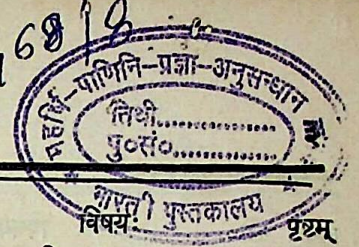 68/8
महर्षि-पाणिनि-प्रज्ञा-अनुसन्धान
तिथी..............
पु०सं०..............
भारती पुस्तकालय
विषयः पृष्टम्